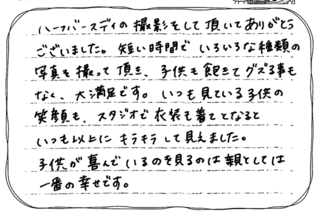 ハーフバースディの撮影をして頂いてありがとう
ございました。短い時間でいろいろな種類の
写真を撮って頂き、子供も飽きてグズる事も
なく、大満足です。いつも見ている子供の
笑顔も、スタジオで衣装も着てとなると
いつも以上にキラキラして見えました。
子供が喜んでいるのを見るのは親としては
一番の幸せです。